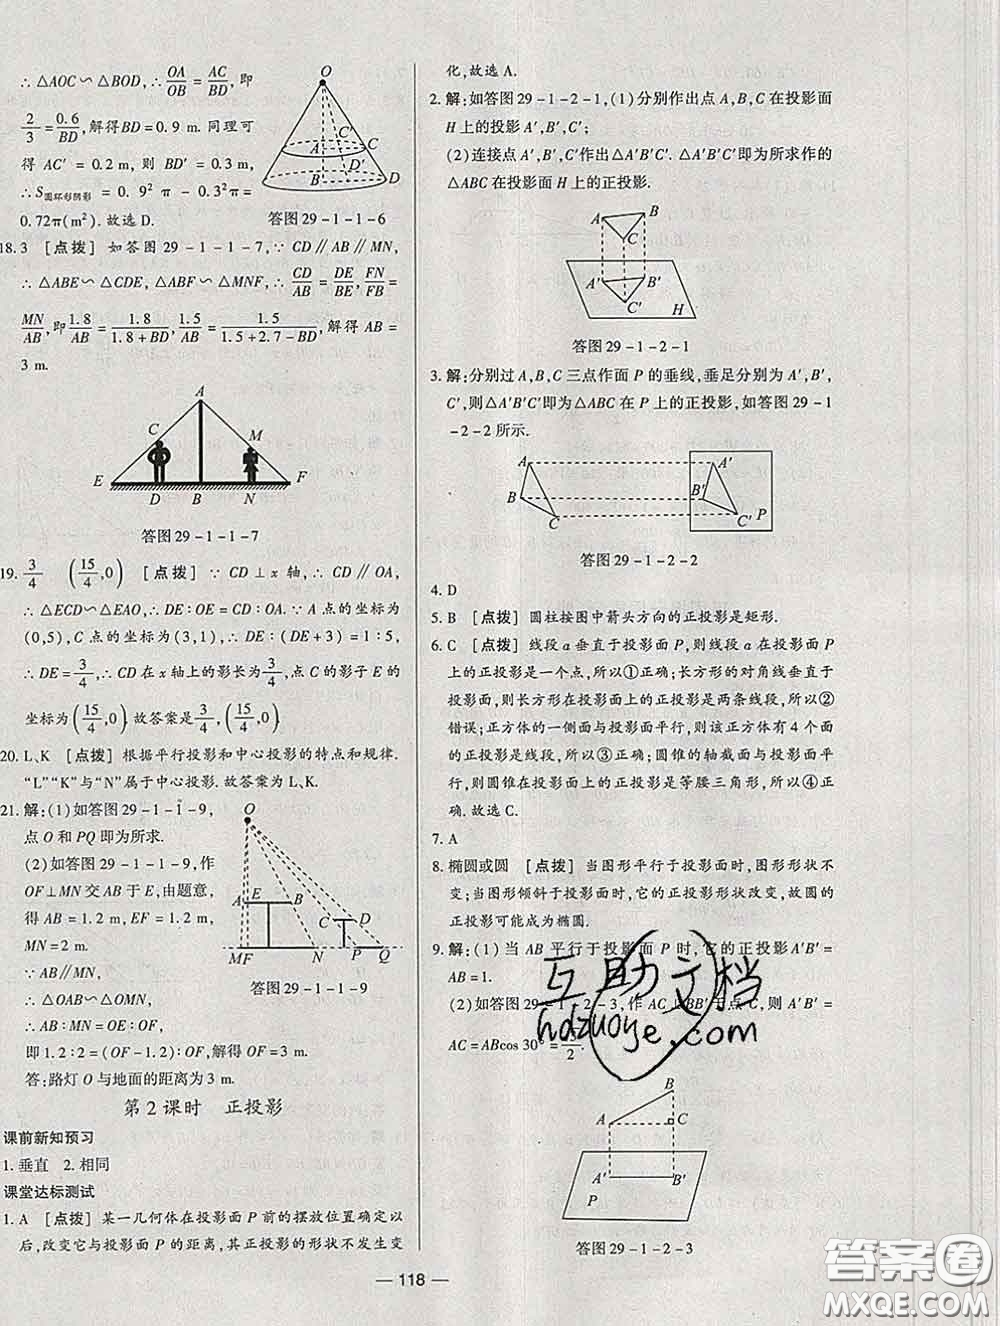 ∴ △AOC∽△BOD,∴ OA/OB = AC/BD,即
2/3 = 0.6/BD,解得BD=0.9 m. 同理可
得 AC′=0.2 m,则 BD′=0.3 m,
∴ S圆环形阴影 = 0.9² π - 0.3²π =
0.72π(m²). 故选 D.
O
C′
A
C
D′
B
D
答图 29-1-1-6
18.3 [点拨] 如答图 29-1-1-7,∵ CD∥AB∥MN,
∴ △ABE∽△CDE,△ABF∽△MNF,∴ CD/AB = DE/BE, FN/FB =
MN/AB,即 1.8/AB = 1.8/(1.8+BD), 1.5/AB = 1.5/(1.5+2.7-BD),解得 AB =
3 m.
A
C
M
E
D
B
N
F
答图 29-1-1-7
19. 3/4 (15/4,0) [点拨] ∵ CD⊥x 轴,∴ CD∥OA,
∴ △ECD∽△EAO,∴ DE:OE=CD:OA. ∵ A 点的坐标为
(0,5),C 点的坐标为(3,1),∴ DE:(DE+3)=1:5,
∴ DE=3/4,∴ CD 在 x 轴上的影长为3/4,点 C 的影子 E 的
坐标为(15/4,0). 故答案是3/4,(15/4,0).
20. L、K [点拨] 根据平行投影和中心投影的特点和规律.
“L”“K”与“N”属于中心投影. 故答案为 L、K.
21. 解:(1)如答图 29-1-1-9,
点 O 和 PQ 即为所求.
(2)如答图 29-1-1-9,作
OF⊥MN 交 AB 于 E,由题意,
得 AB=1.2 m,EF=1.2 m,
MN=2 m.
∵ AB∥MN,
∴ △OAB∽△OMN,
∴ AB:MN=OE:OF,
即 1.2:2=(OF-1.2):OF,解得 OF=3 m.
答:路灯 O 与地面的距离为 3 m.
O
A
E
B
C
D
MF
N
P
Q
答图 29-1-1-9
第 2 课时 正投影
课前新知预习
1. 垂直 2. 相同
课堂达标测试
1. A [点拨] 某一几何体在投影面 P 前的摆放位置确定以
后,改变它与投影面 P 的距离,其正投影的形状不发生变
化,故选 A.
2. 解:如答图 29-1-2-1,(1)分别作出点 A,B,C 在投影面
H 上的投影 A′,B′,C′;
(2)连接点 A′,B′,C′作出△A′B′C′. △A′B′C′即为所求作的
△ABC 在投影面 H 上的正投影.
A
B
C
A′
B′
C′
H
答图 29-1-2-1
3. 解:分别过 A,B,C 三点作面 P 的垂线,垂足分别为 A′,B′,
C′,则△A′B′C′即为△ABC 在 P 上的正投影,如答图 29-1
-2-2 所示.
A
A′
B
B′
C
C′
P
答图 29-1-2-2
4. D
5. B [点拨] 圆柱按图中箭头方向的正投影是矩形.
6. C [点拨] 线段 a 垂直于投影面 P,则线段 a 在投影面 P
上的正投影是一个点,所以①正确;长方形的对角线垂直于
投影面,则长方形在投影面上的正投影是两条线段,所以②
错误;正方体的一侧面与投影面平行,则该正方体有 4 个面
的正投影是线段,所以③正确;圆锥的轴截面与投影面平
行,则圆锥在投影面上的正投影是等腰三角形,所以④正
确. 故选 C.
7. A
8. 椭圆或圆 [点拨] 当图形平行于投影面时,图形形状不
变;当图形倾斜于投影面时,它的正投影形状改变,故圆的
正投影可能成为椭圆.
9. 解:(1)当 AB 平行于投影面 P 时,它的正投影A′B′=
AB=1.
(2)如答图 29-1-2-3,作 AC⊥BB′于点 C,则 A′B′=
AC=ABcos 30°=√3/2.
B
A
C
A′
B′
P
答图 29-1-2-3
互助文档
hdzuoye.com
— 118 —
答案圈
MXQE.COM